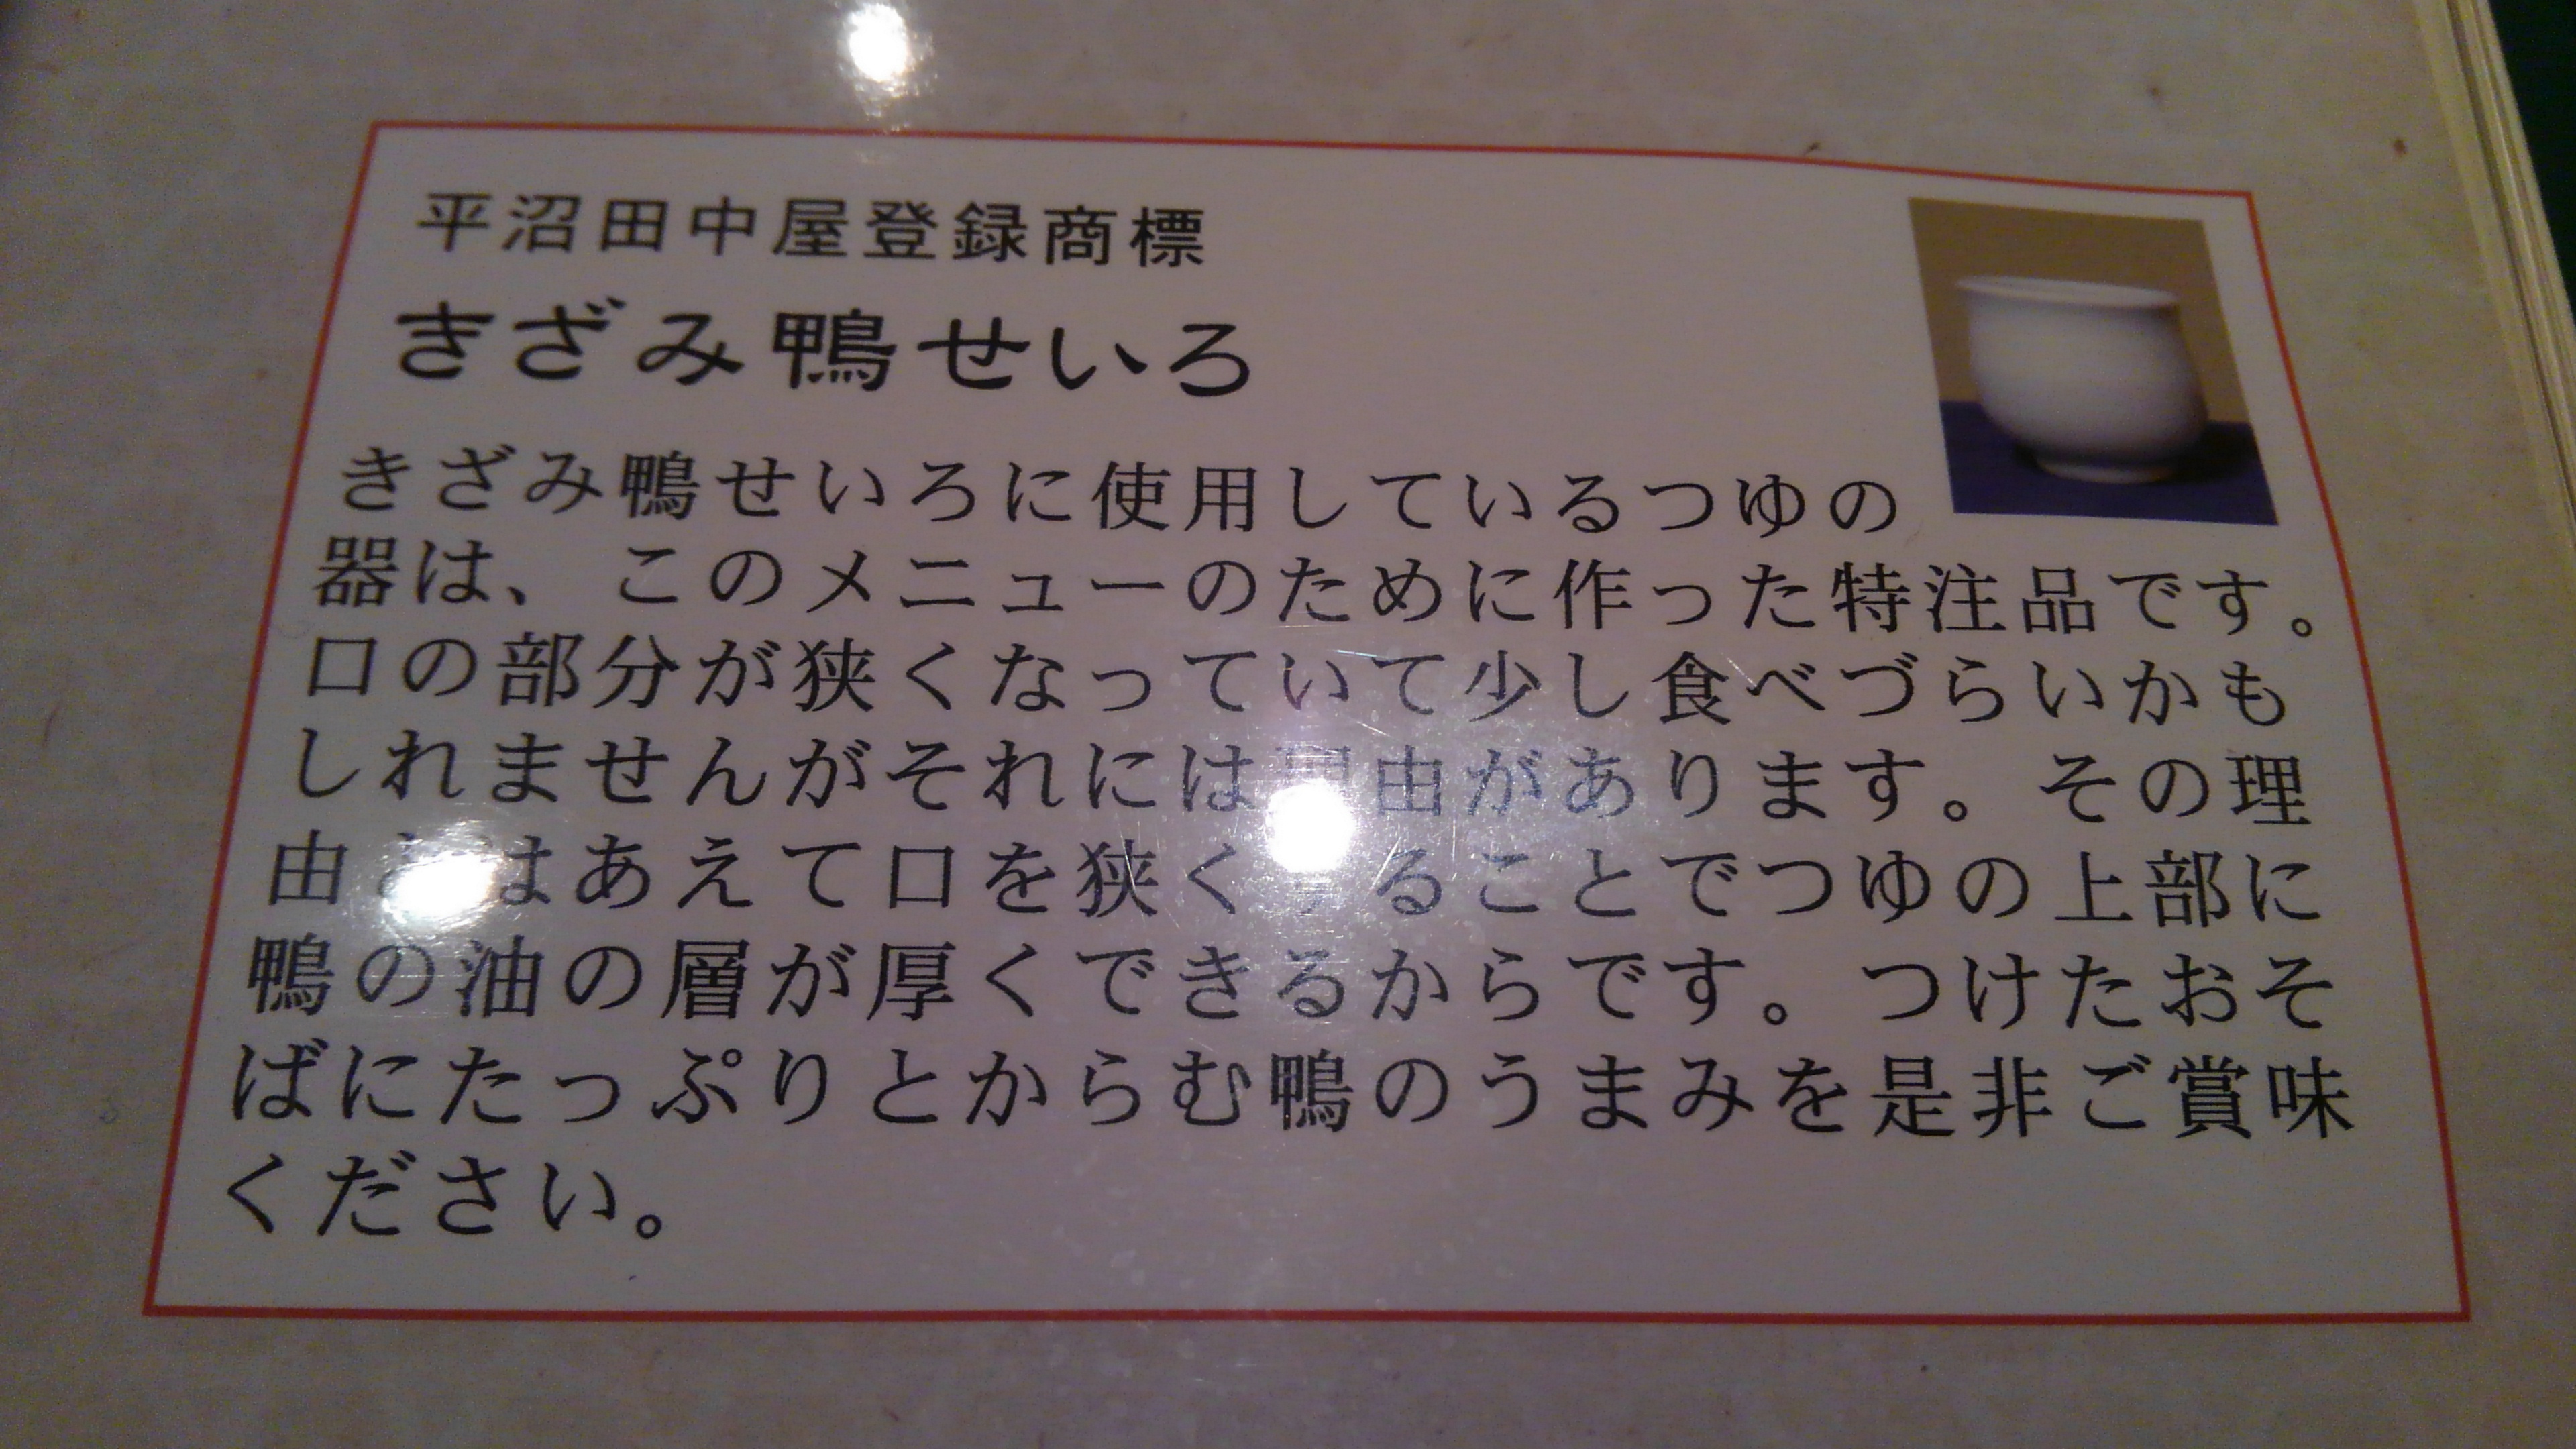 平沼田中屋登録商標
きざみ鴨せいろ
きざみ鴨せいろに使用しているつゆの
器は、このメニューのために作った特注品です。
口の部分が狭くなっていて少し食べづらいかも
しれませんがそれには理由があります。その理
由とはあえて口を狭くすることでつゆの上部に
鴨の油の層が厚くできるからです。つけたおそ
ばにたっぷりとからむ鴨のうまみを是非ご賞味
ください。